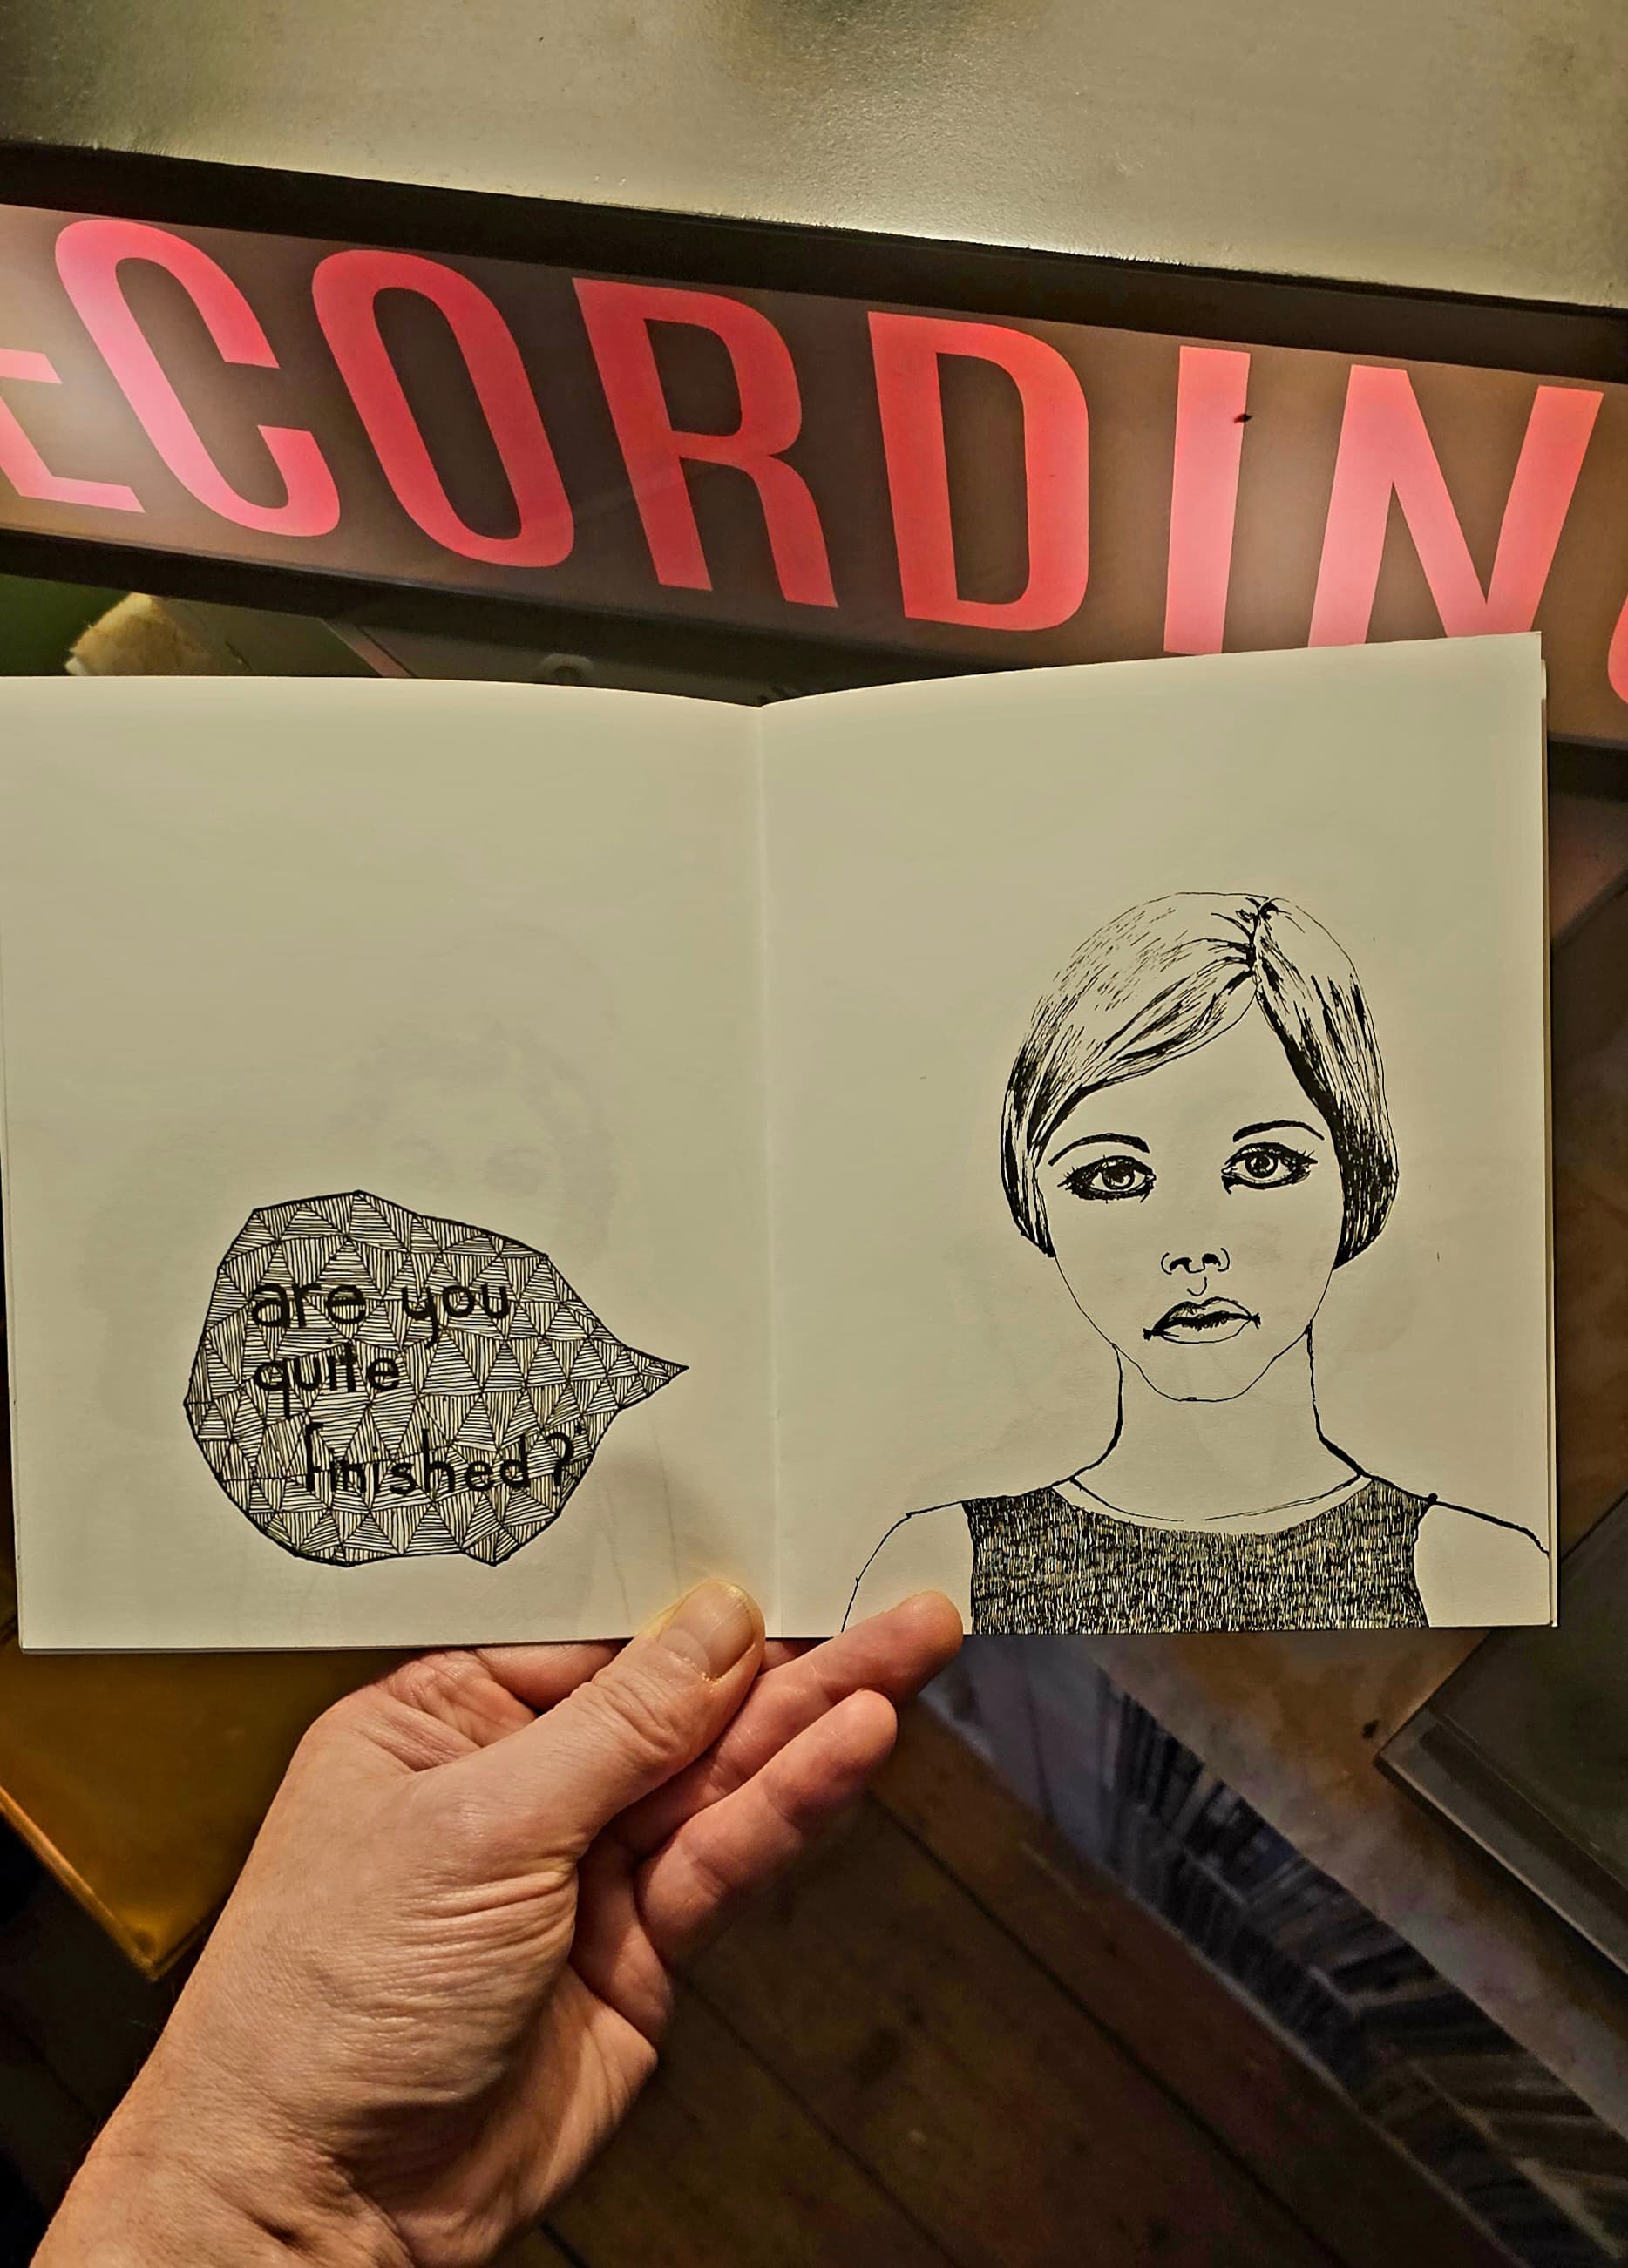 ECORDIN
are you
quite
finished?